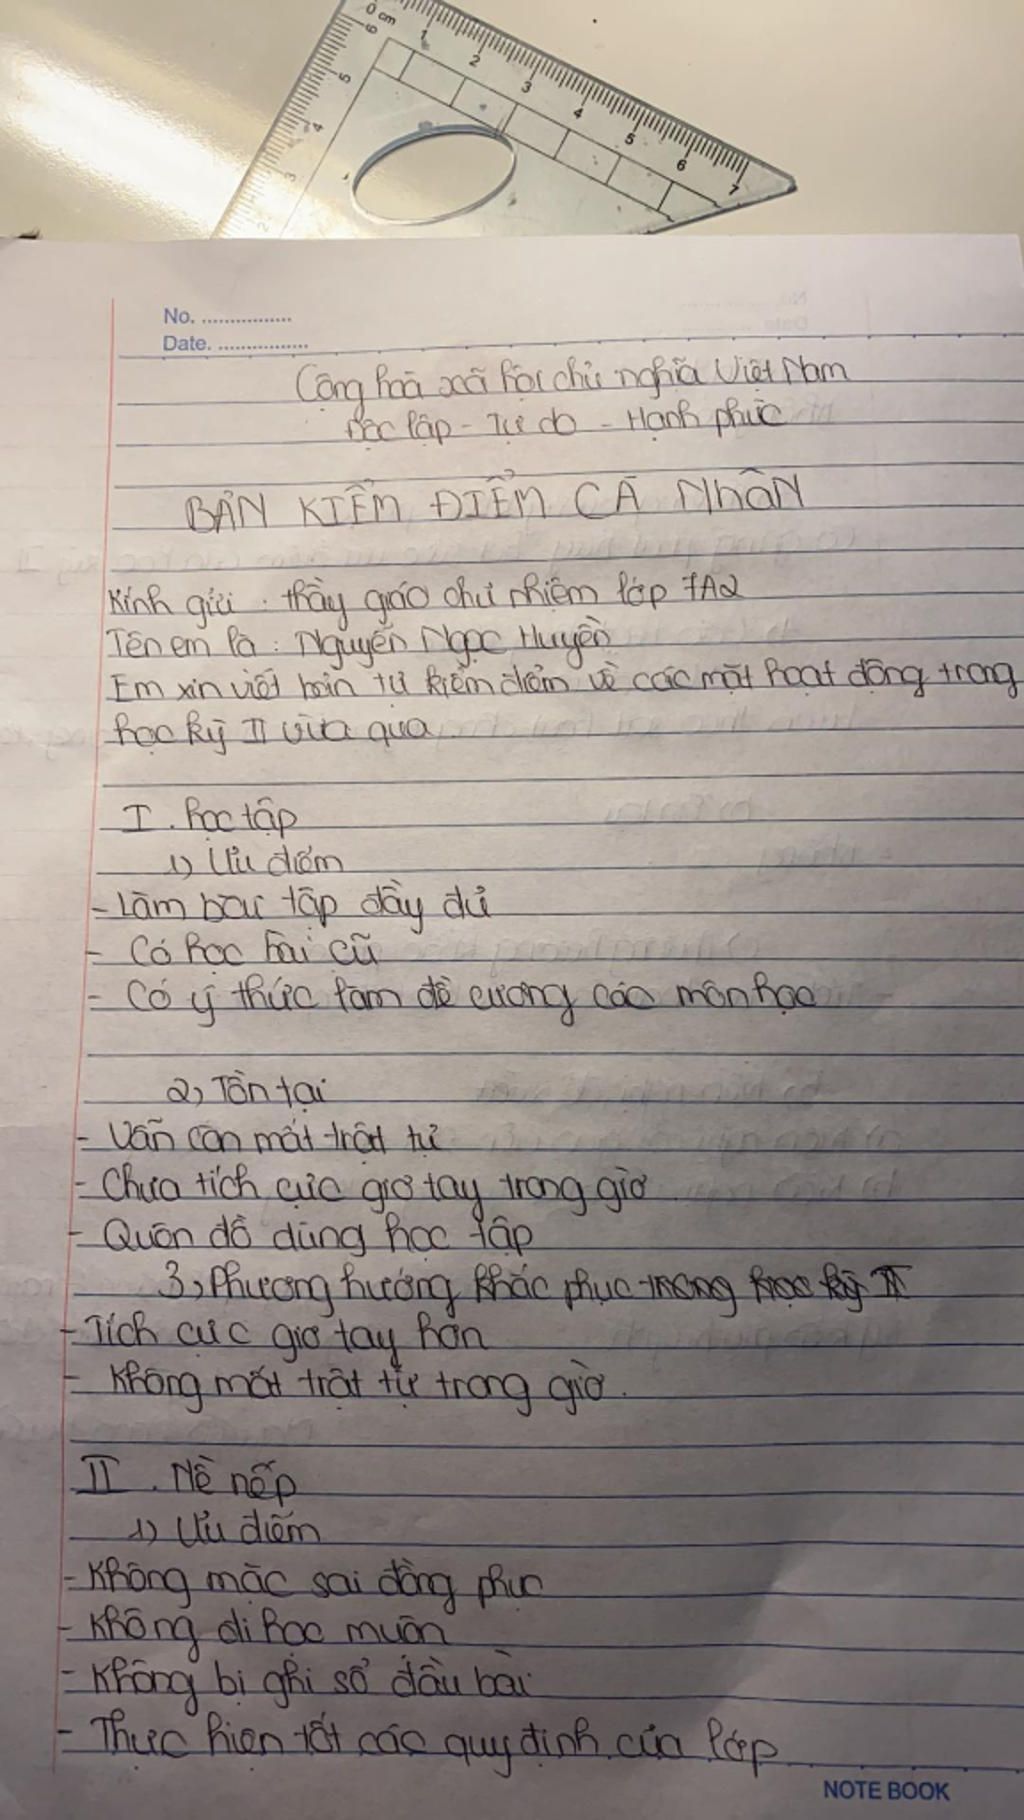 0 cm 1 2 3 4 5 6 7
6
5
4
3
2
No. ................
Date. ................
Cộng hoà xã hội chủ nghĩa Việt Nam
Độc lập - Tự do - Hạnh phúc
BẢN KIỂM ĐIỂM CÁ NHÂN
Kính gửi : thầy giáo chủ nhiệm lớp 7A2
Tên em là : Nguyễn Ngọc Huyền
Em xin viết bản tự kiểm điểm về các mặt hoạt động trong
học kỳ II vừa qua
I. học tập
1) Ưu điểm
- Làm bài tập đầy đủ
- Có học bài cũ
- Có ý thức làm đề cương các môn học
2) Tồn tại
- Vẫn còn mất trật tự
- Chưa tích cực giơ tay trong giờ
- Quên đồ dùng học tập
3) Phương hướng khắc phục trong học kỳ II
- Tích cực giơ tay hơn
- Không mất trật tự trong giờ.
II. Nề nếp
1) Ưu điểm
- Không mặc sai đồng phục
- Không đi học muộn
- Không bị ghi sổ đầu bài
- Thực hiện tốt các quy định của lớp
NOTE BOOK